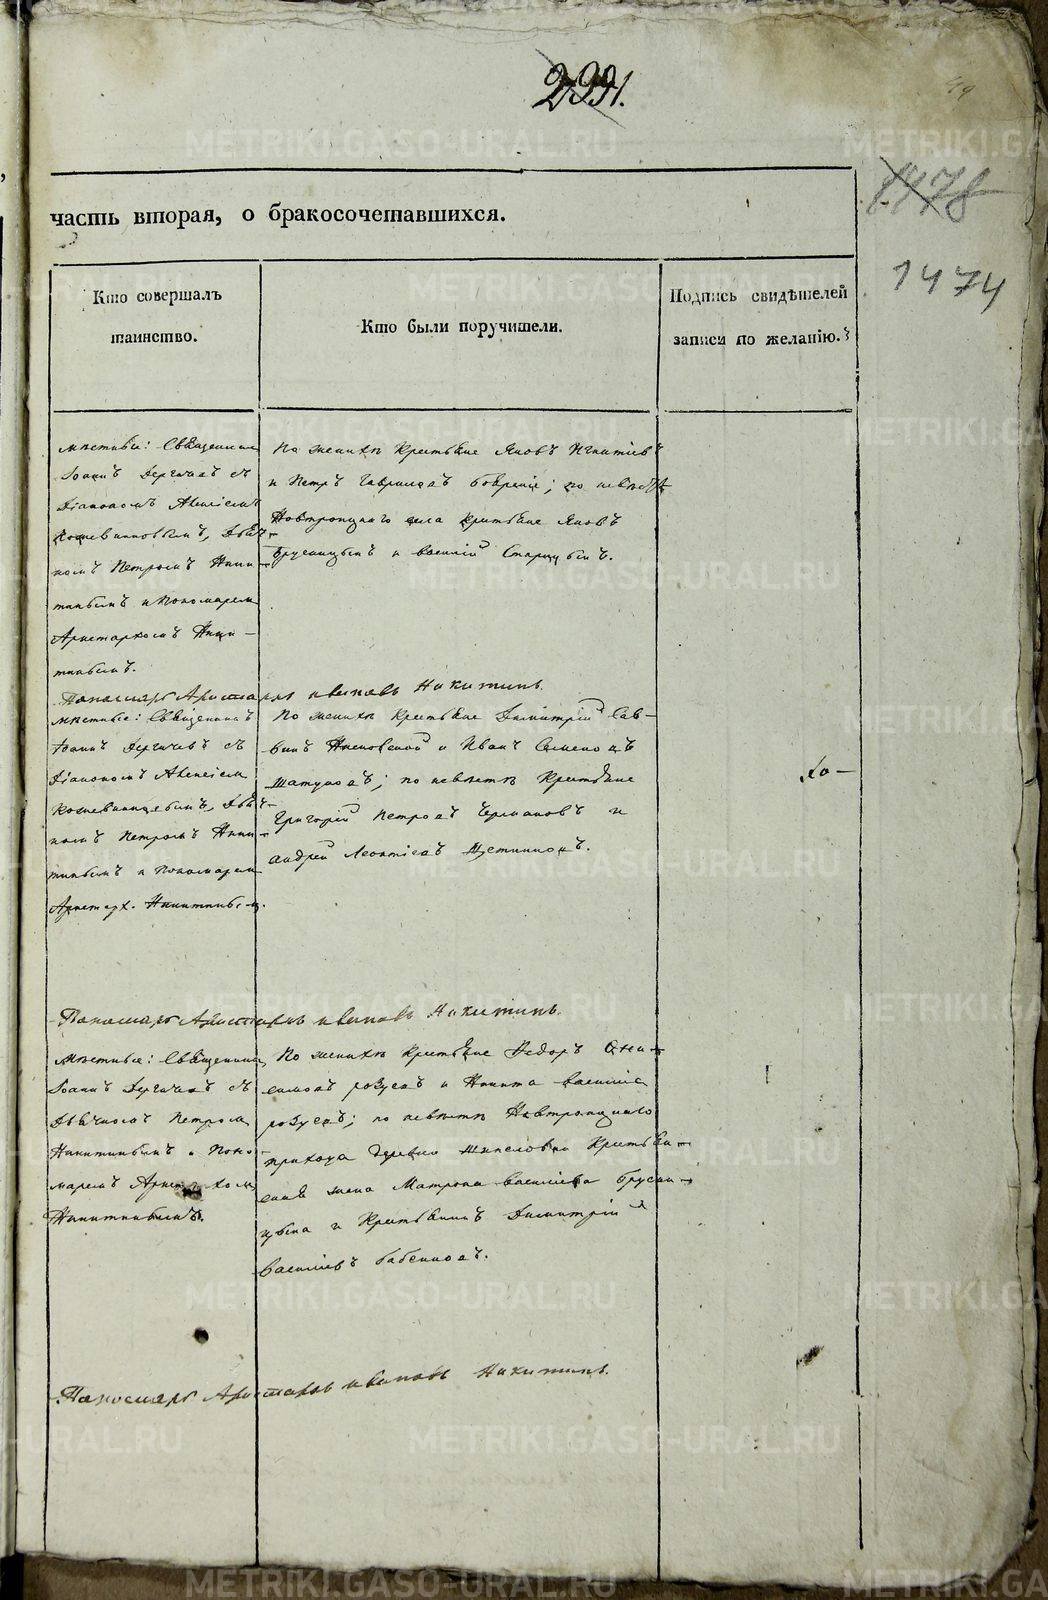 2991.
49
1478
1474
часть вторая, о бракосочетавшихся.
Кто совершалъ
таинство.
Кто были поручители.
Подпись свидѣтелей
записи по желанію.
мѣстные: Священникъ
Іоаннъ Дергачевъ съ
Діакономъ Алексіемъ
Кожевниковымъ, Дьяч-
комъ Петромъ Ники-
тинымъ и Пономаремъ
Аристархомъ Ники-
тинымъ.
По женихѣ Крестьяне Яковъ Игнатіевъ
и Петръ Гавриловъ ; по невѣстѣ
села крестьяне Яковъ
Брусницынъ и Василій Старцынъ.
Пономарь Аристархъ Ивановъ Никитинъ.
мѣстные: Священникъ
Іоаннъ Дергачевъ съ
Діакономъ Алексіем
Кожевниковымъ, Дьяч-
комъ Петромъ Ники-
тинымъ и Пономарем
Аристарх. Никитинымъ.
По женихѣ Крестьяне Димитрій Сав-
винъ и Иванъ Семеновъ
Шатуновъ; по невѣстѣ Крестьяне
Григорій Петровъ и
Андрей Леонтіевъ Щетниковъ.
Пономарь Аристархъ Ивановъ Никитинъ.
Мѣстные: Священникъ
Іоаннъ Дергачевъ съ
Дьячкомъ Петромъ
Никитинымъ и Поно-
маремъ Аристархомъ
Никитинымъ.
По женихѣ Крестьяне Федоръ Они-
симовъ и Никита Василіев
; по невѣстѣ
прихода деревни Крестьян-
ская жена Матрона Василіева Брусни-
цына и Крестьянинъ Димитрій
Василіевъ Бабенковъ.
Пономарь Аристархъ Ивановъ Никитинъ.
METRIKI.GASO-URAL.RU